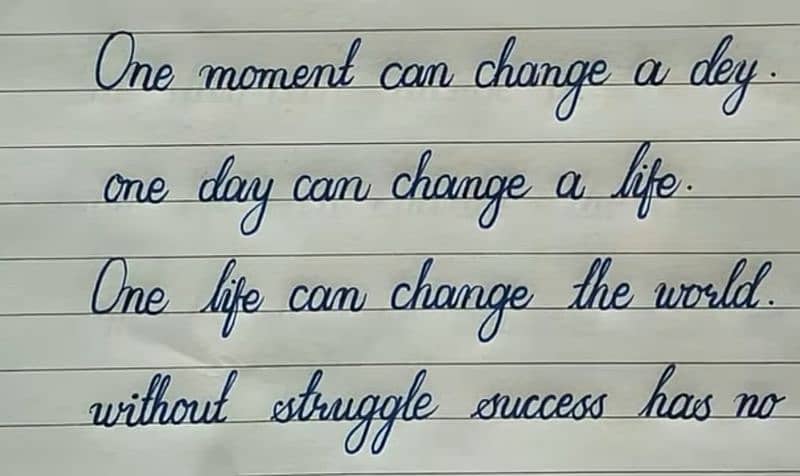 One moment can change a dey.
one day can change a life.
One life can change the world.
without struggle success has no